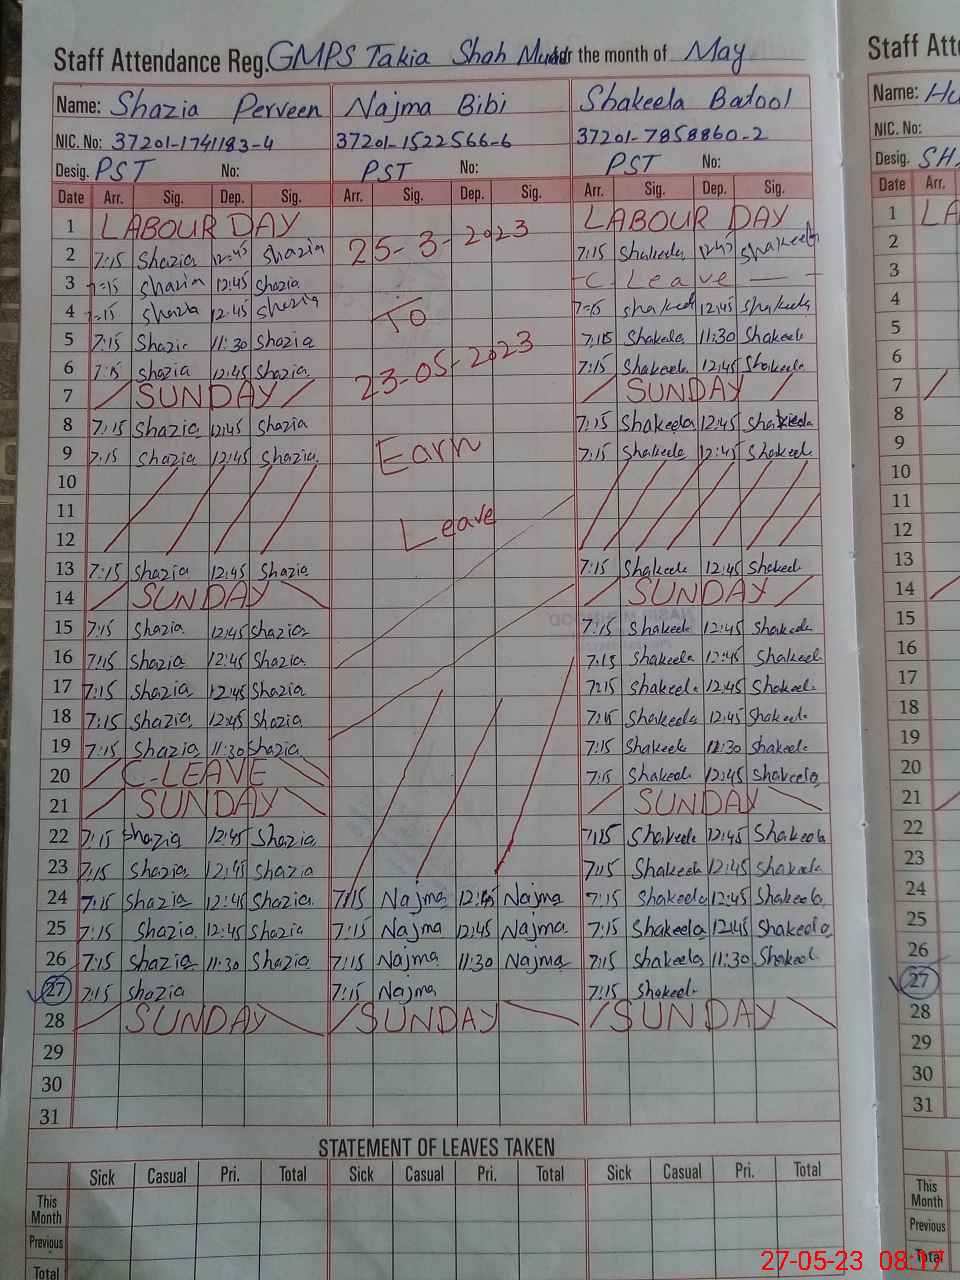 Staff Attendance Reg. GMPS Takia Shah for the month of May
Staff Att
Name: Shazia Perveen Najma Bibi Shakeela Batool
Name: Hu
NIC. No: 37201-1741183-4 37201-1522566-6 37201-7858860-2
NIC. No:
Desig. PST No: PST No: PST No:
Desig. SH
Date Arr. Sig. Dep. Sig. Arr. Sig. Dep. Sig. Arr. Sig. Dep. Sig.
Date Arr.
1 LABOUR DAY LABOUR DAY
1 LA
2 7:15 Shazia 12:45 Shazia 25-3-2023 7:15 Shakeela 12:45 Shakeela
2
3 7:15 Shazia 12:45 Shazia C Leave
3
4 7:15 Shazia 12:45 Shazia To 7:15 Shakeela 12:45 Shakeela
4
5 7:15 Shazia 11:30 Shazia 7:15 Shakeela 11:30 Shakeela
5
6 7:15 Shazia 12:45 Shazia 23-05-2023 7:15 Shakeela 12:45 Shakeela
6
7 SUNDAY SUNDAY
7
8 7:15 Shazia 12:45 Shazia 7:15 Shakeela 12:45 Shakeela
8
9 7:15 Shazia 12:45 Shazia Earn 7:15 Shakeela 12:45 Shakeela
9
10
10
11
11
12 Leave
12
13 7:15 Shazia 12:45 Shazia 7:15 Shakeela 12:45 Shakeel
13
14 SUNDAY SUNDAY
14
15 7:15 Shazia 12:45 Shazia 7:15 Shakeela 12:45 Shakeela
15
16 7:15 Shazia 12:45 Shazia 7:15 Shakeela 12:45 Shakeela
16
17 7:15 Shazia 12:45 Shazia 7:15 Shakeela 12:45 Shakeela
17
18 7:15 Shazia 12:45 Shazia 7:15 Shakeela 12:45 Shakeela
18
19 7:15 Shazia 11:30 Shazia 7:15 Shakeela 11:30 Shakeela
19
20 C-LEAVE 7:15 Shakeel 12:45 Shakeela
20
21 SUNDAY SUNDAY
21
22 7:15 Shazia 12:45 Shazia 7:15 Shakeela 12:45 Shakeela
22
23 7:15 Shazia 12:45 Shazia 7:15 Shakeela 12:45 Shakeela
23
24 7:15 Shazia 12:45 Shazia 7:15 Najma 12:45 Najma 7:15 Shakeela 12:45 Shakeela
24
25 7:15 Shazia 12:45 Shazia 7:15 Najma 12:45 Najma 7:15 Shakeela 12:45 Shakeela
25
26 7:15 Shazia 11:30 Shazia 7:15 Najma 11:30 Najma 7:15 Shakeela 11:30 Shakeel
26
27 7:15 Shazia 7:15 Najma 7:15 Shakeel
27
28 SUNDAY SUNDAY SUNDAY
28
29
29
30
30
31
31
STATEMENT OF LEAVES TAKEN
Sick Casual Pri. Total Sick Casual Pri. Total Sick Casual Pri. Total
This
Month
This
Month
Previous
Previous
Total
Total
27-05-23 08:17